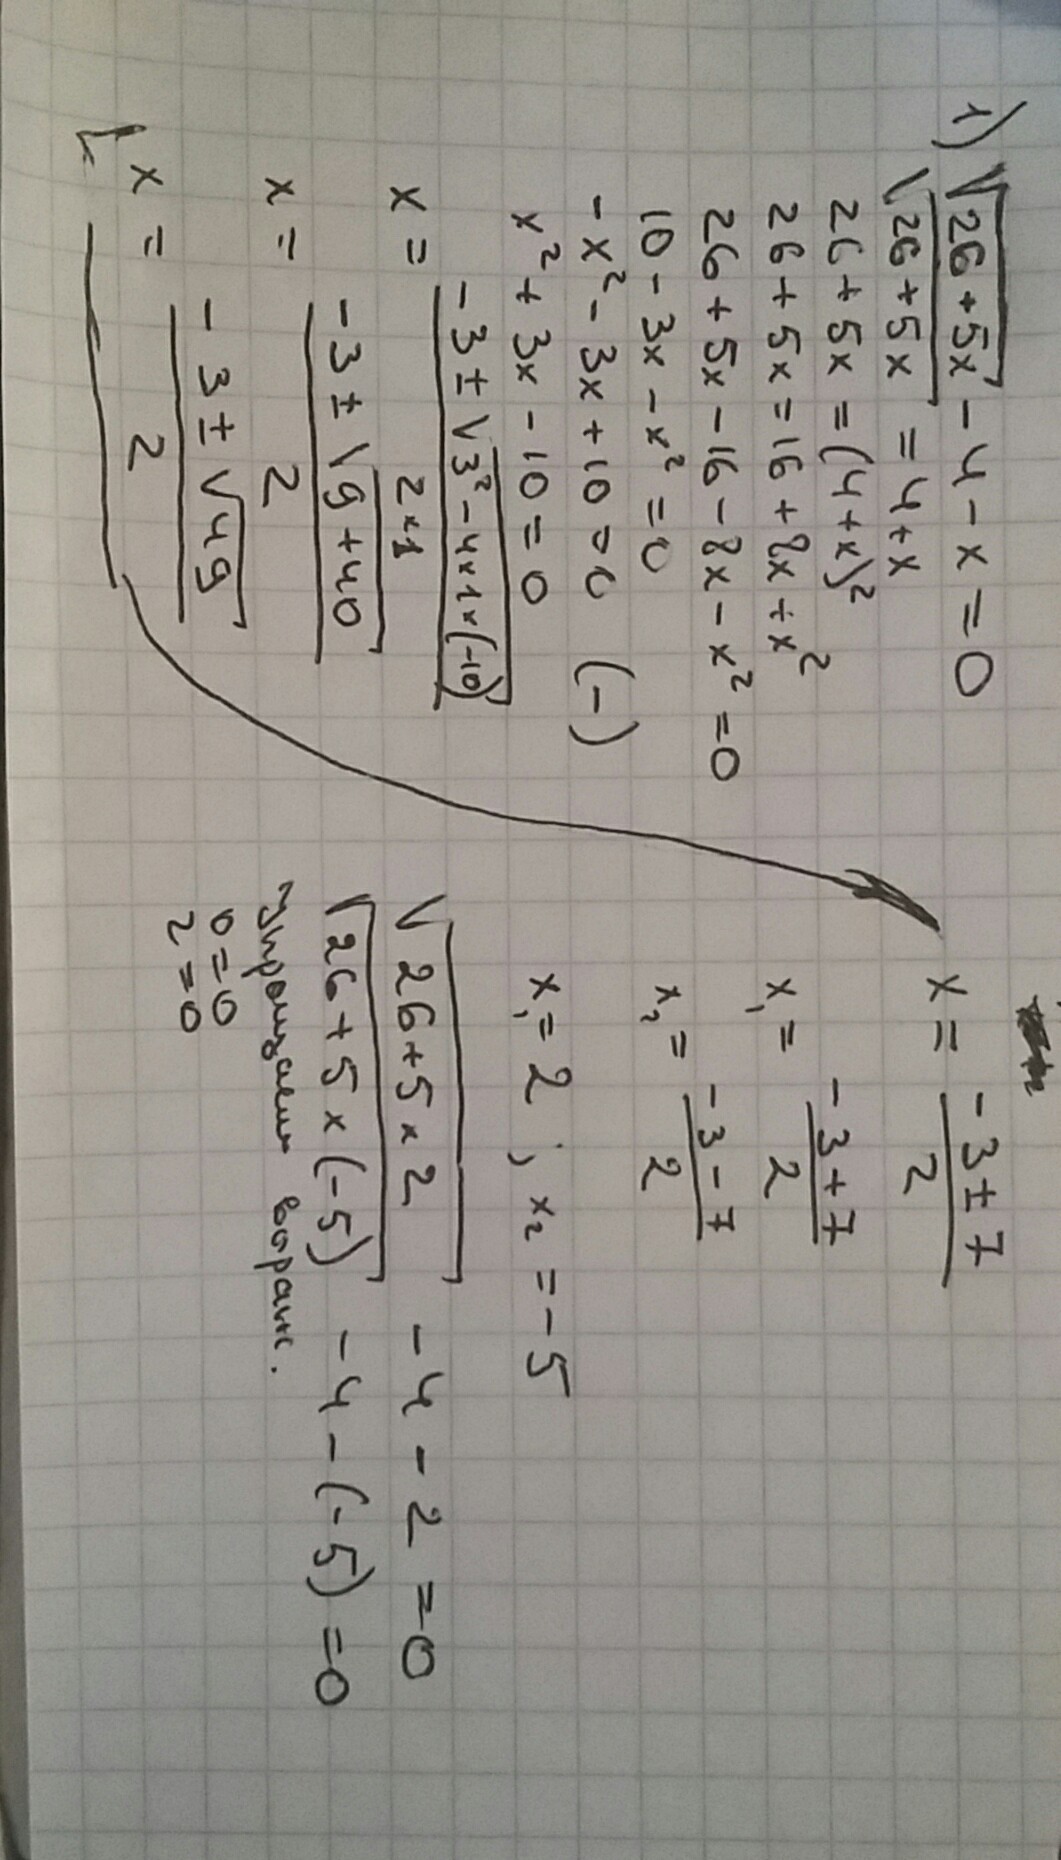 1) √26+5x - 4 - x = 0
√26+5x = 4+x
26+5x = (4+x)²
26+5x = 16+8x+x²
26+5x-16-8x-x² = 0
10-3x-x² = 0
-x²-3x+10 = 0 (-)
x²+3x-10 = 0
x = -3±√3²-4×1×(-10) / 2×1
x = -3±√9+40 / 2
x = -3±√49 / 2
x = -3±7 / 2
x₁ = -3+7 / 2
x₂ = -3-7 / 2
x₁ = 2; x₂ = -5
√26+5×2 - 4 - 2 = 0
√26+5×(-5) - 4 - (-5) = 0
упрощаем
0=0
2=0